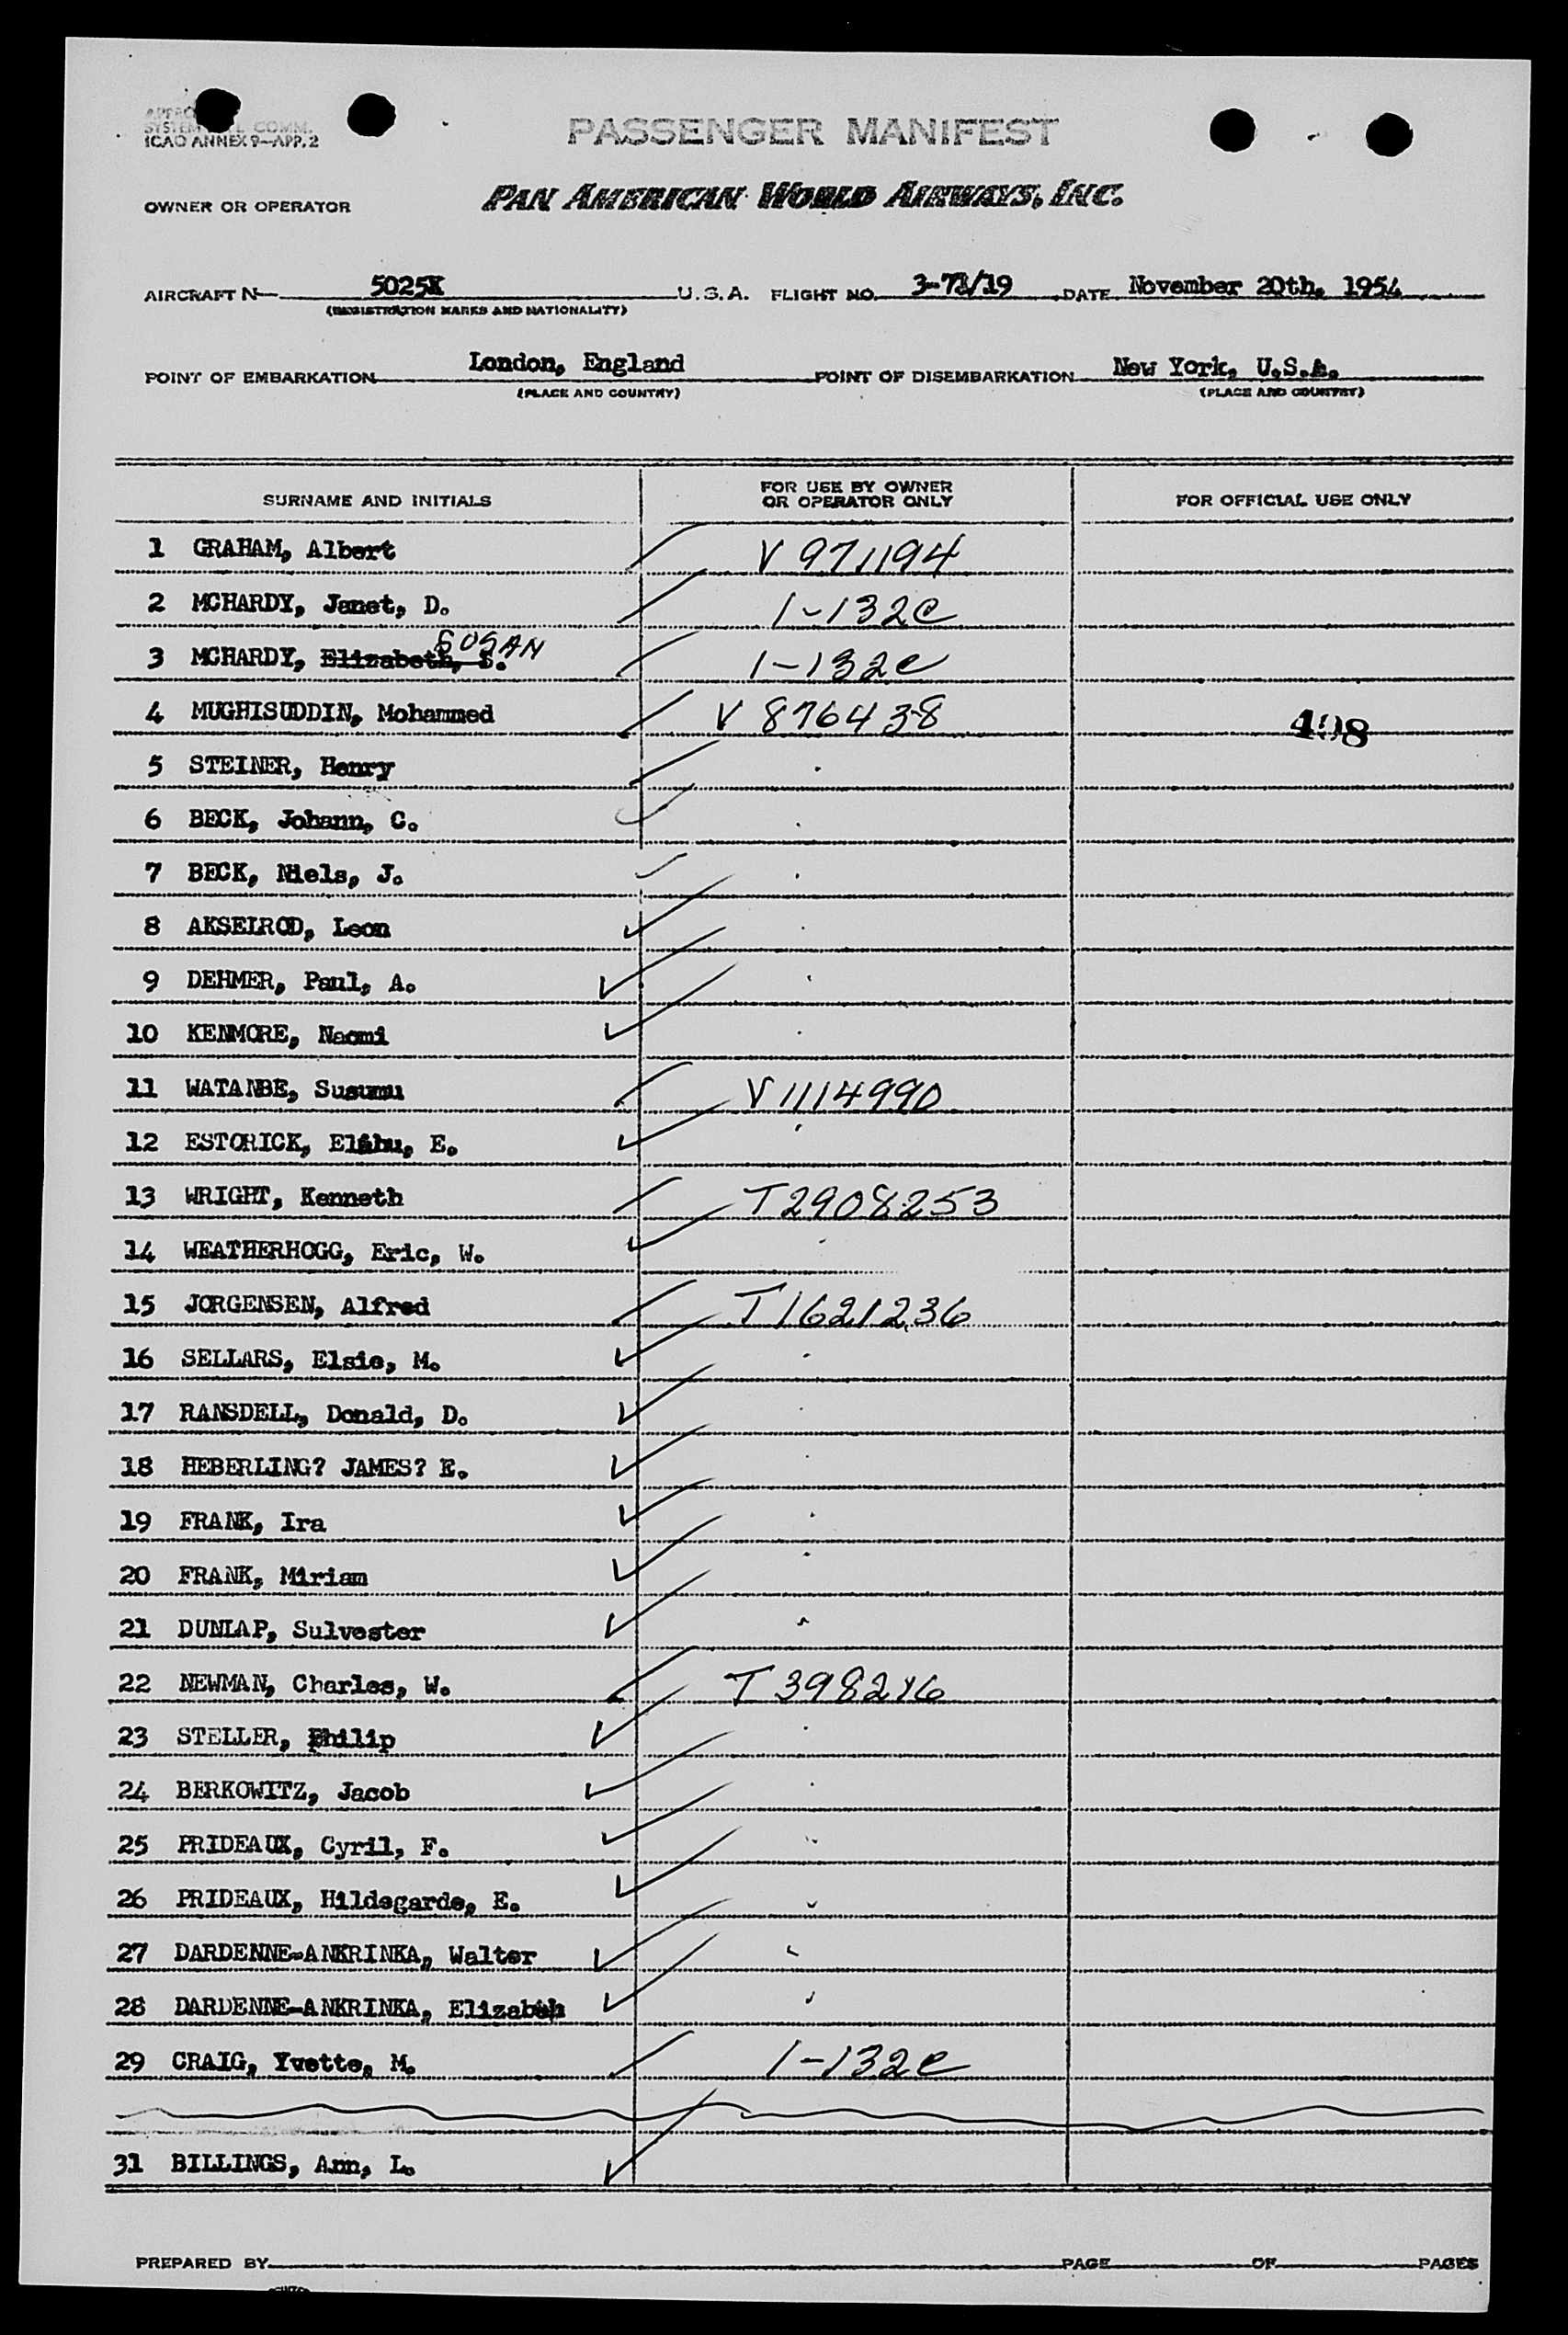 SYSTEM COMM.
ICAO ANNEX 9—APP. 2
PASSENGER MANIFEST
OWNER OR OPERATOR PAN AMERICAN WORLD AIRWAYS, INC.
AIRCRAFT N 5025K U.S.A. FLIGHT NO. 3-71/19 DATE November 20th, 1954
(REGISTRATION MARKS AND NATIONALITY)
POINT OF EMBARKATION London, England POINT OF DISEMBARKATION New York, U.S.A.
(PLACE AND COUNTRY) (PLACE AND COUNTRY)
SURNAME AND INITIALS FOR USE BY OWNER OR OPERATOR ONLY FOR OFFICIAL USE ONLY
1 GRAHAM, Albert V 971194
2 MCHARDY, Janet, D. 1-132c
3 MCHARDY, Elizabeth, S. SUSAN 1-132c
4 MUGHISUDDIN, Mohammed V 876438 498
5 STEINER, Henry
6 BECK, Johann, C.
7 BECK, Niels, J.
8 AKSELROD, Leon
9 DEHMER, Paul, A.
10 KENMORE, Naomi
11 WATANBE, Susumu V 1114990
12 ESTORICK, Elihu, E.
13 WRIGHT, Kenneth T2908253
14 WEATHERHOGG, Eric, W.
15 JORGENSEN, Alfred T1621236
16 SELLARS, Elsie, M.
17 RANSDELL, Donald, D.
18 HEBERLING? JAMES? E.
19 FRANK, Ira
20 FRANK, Miriam
21 DUNLAP, Sulvester
22 NEWMAN, Charles, W. T 398216
23 STELLER, Philip
24 BERKOWITZ, Jacob
25 PRIDEAUX, Cyril, F.
26 PRIDEAUX, Hildegarde, E.
27 DARDENNE-ANKRINKA, Walter
28 DARDENNE-ANKRINKA, Elizabeh
29 CRAIG, Yvette, M. 1-132c
31 BILLINGS, Ann, L.
PREPARED BY PAGE OF PAGES